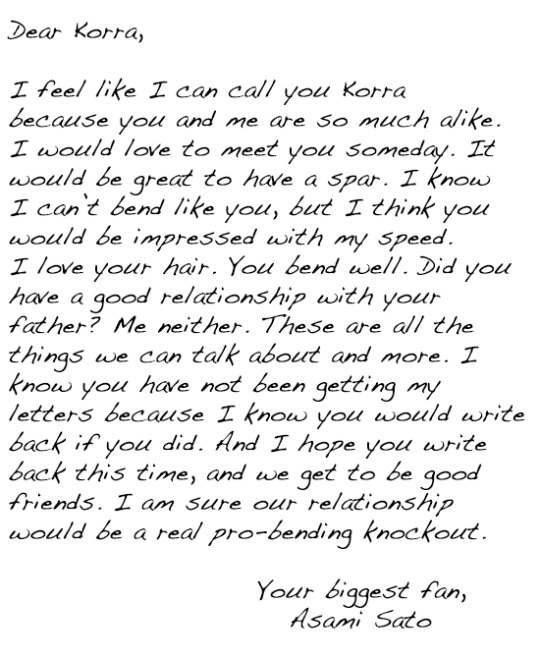 Dear Korra,
I feel like I can call you Korra
because you and me are so much alike.
I would love to meet you someday. It
would be great to have a spar. I know
I can't bend like you, but I think you
would be impressed with my speed.
I love your hair. You bend well. Did you
have a good relationship with your
father? Me neither. These are all the
things we can talk about and more. I
know you have not been getting my
letters because I know you would write
back if you did. And I hope you write
back this time, and we get to be good
friends. I am sure our relationship
would be a real pro-bending knockout.
Your biggest fan,
Asami Sato